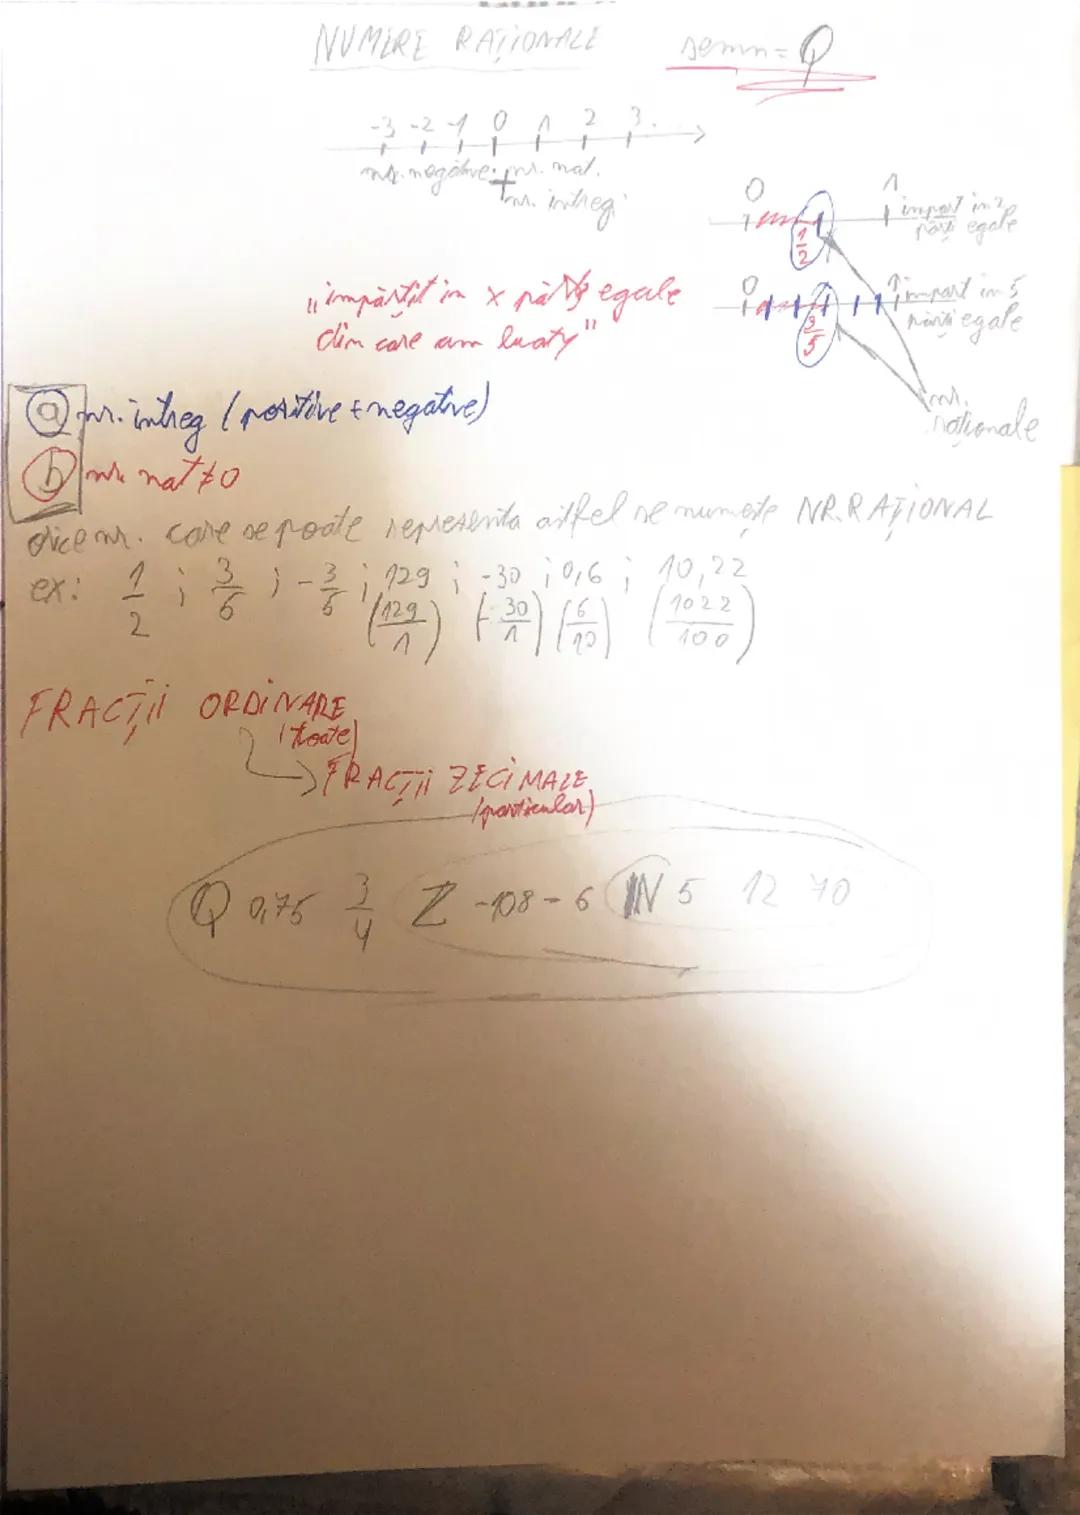 NUMERE RAȚIONALE semn = Q
-3 -2 -1 0 1 2 3
nr. negative + nr. nat.
nr. intregi
0 1
1/2
impart in 2
părți egale
0 1
3/5
impart in 5
părți egale
nr.
raționale
„împărțit in x părți egale
din care am luat y"
a nr. intreg (pozitive + negative)
b nr. nat ≠ 0
orice nr. care se poate reprezenta astfel se numește NR. RAȚIONAL
ex: 1/2 ; 3/6 ; -3/6 ; 129 ; -30 ; 0,6 ; 10,22
(129/1) (-30/1) (6/10) (1022/100)
FRACȚII ORDINARE
(toate)
FRACȚII ZECIMALE
(particular)
Q 0,75 3/4 Z -108 -6 N 5 12 70